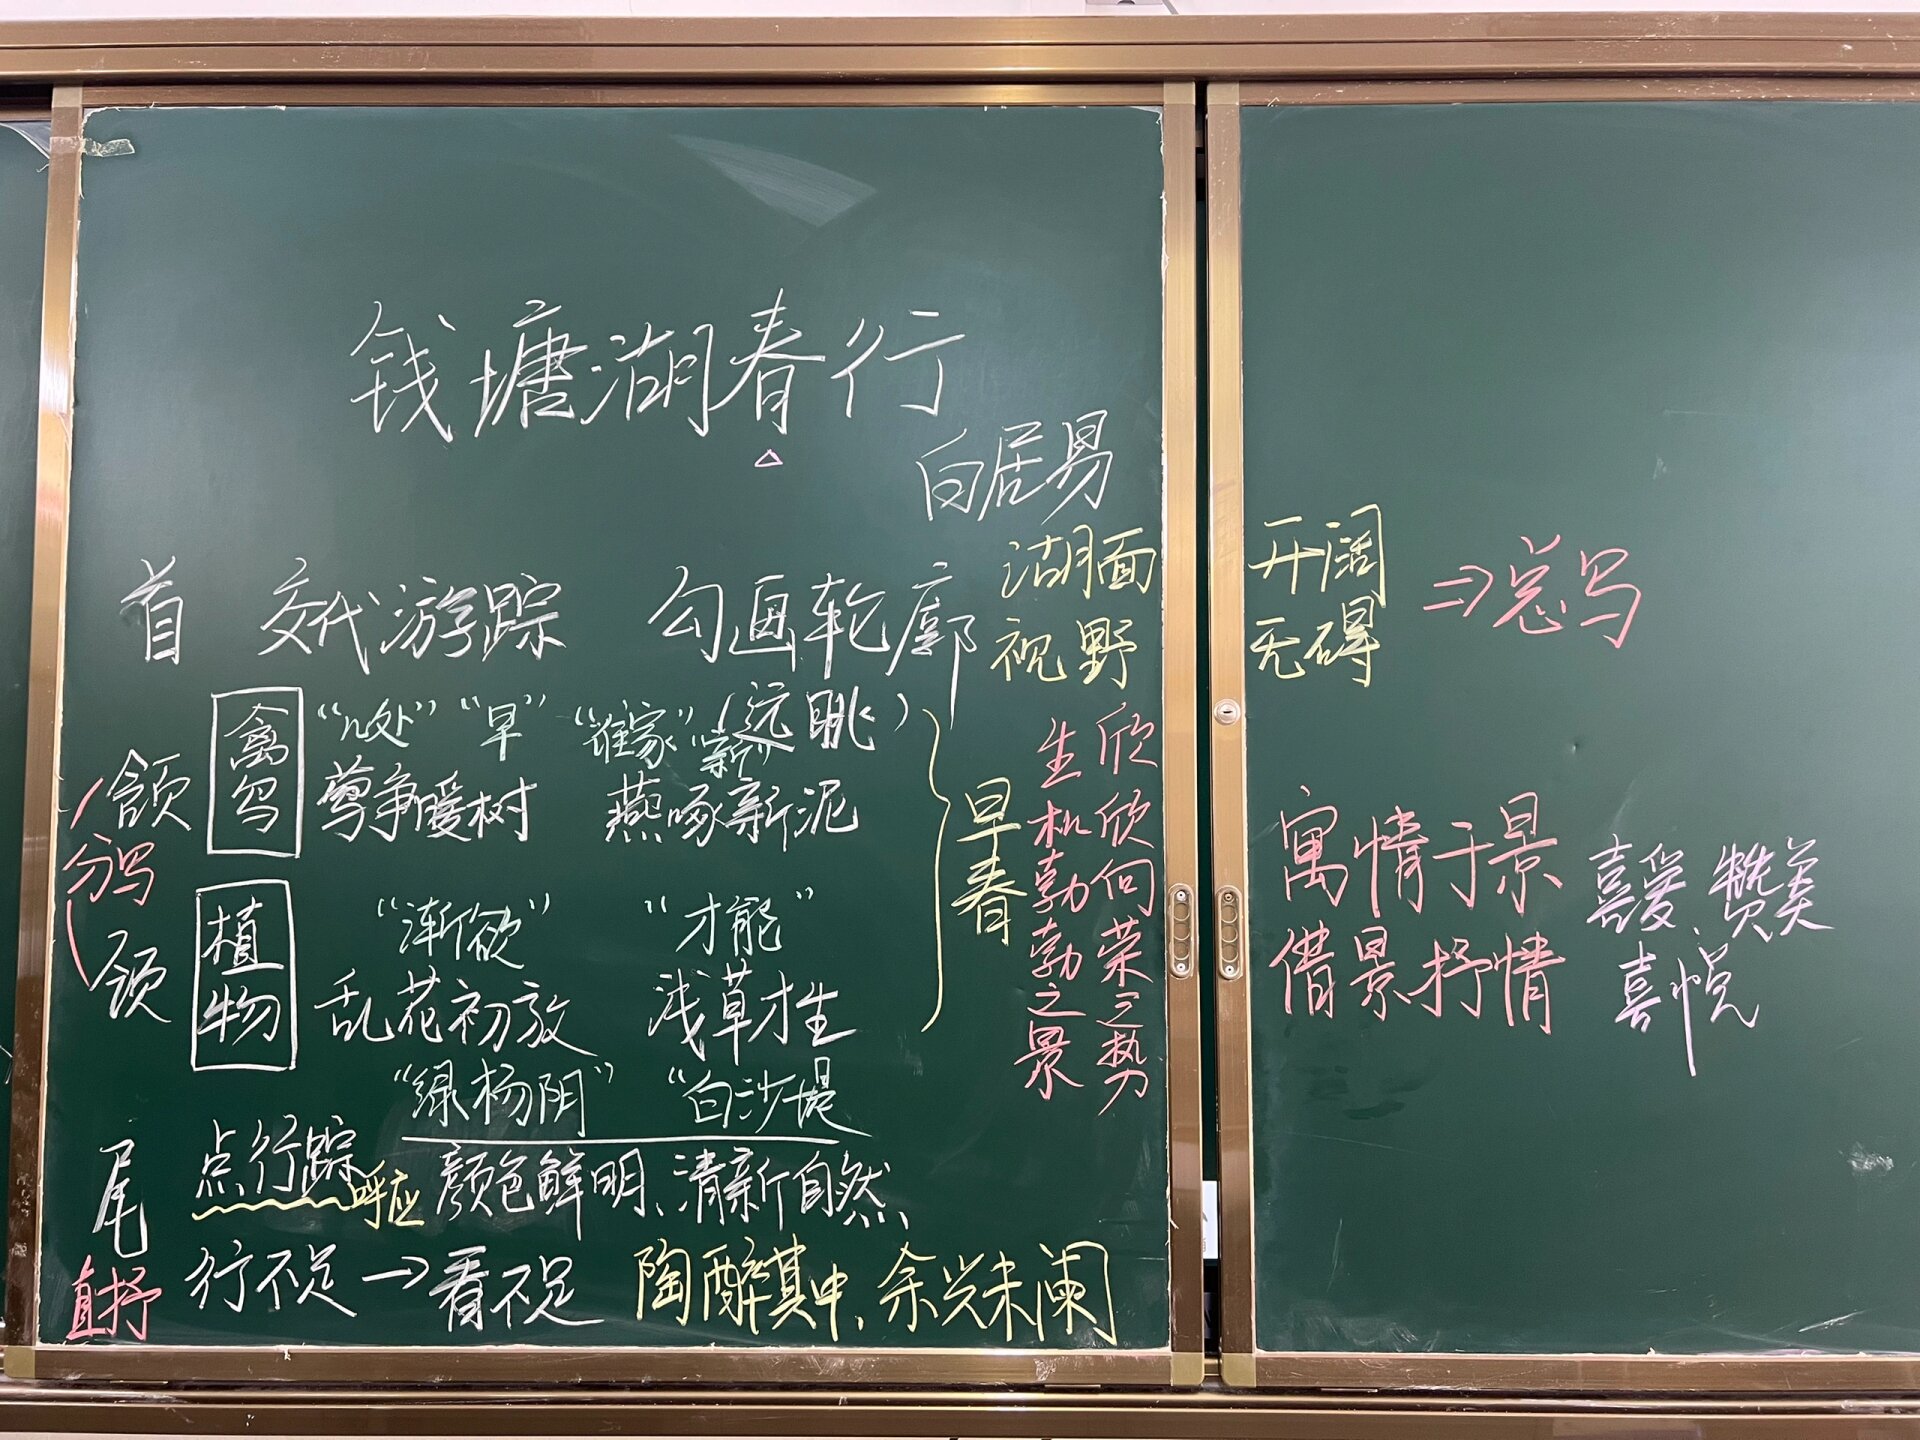 钱塘湖春行
白居易
首 交代游踪 勾画轮廓
湖面 开阔
视野 无碍
⇒总写
禽鸟
"几处" "早" "谁家" "新" (远眺)
颔
莺争暖树 燕啄新泥
分写
植物
"渐欲" "才能"
颈
乱花初放 浅草才生
早春
欣欣向荣之势
生机勃勃之景
寓情于景
借景抒情
喜爱、赞美
喜悦
"绿杨阴" "白沙堤
尾 点行踪 呼应 颜色鲜明、清新自然
直抒 行不足→看不足 陶醉其中、余兴未阑